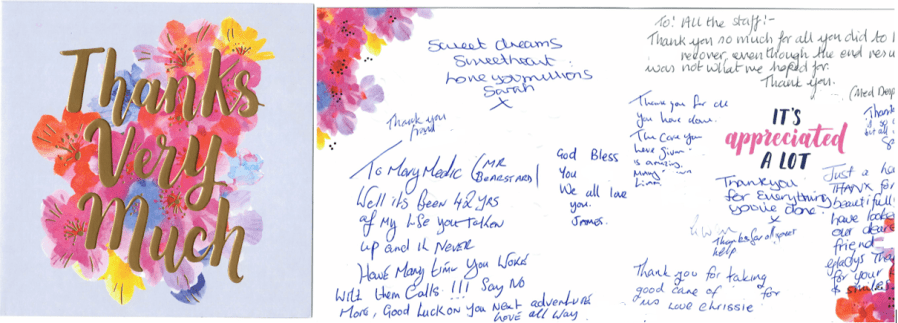 Thanks
Very
Much
Sweet dreams
Sweetheart
Love you millions
Sarah
X
Thank you
friend
To Mary Medic (MR
Well its Been 42 YRS
of My Life you Taken
up and it Never
How Many Time You Woke
With them Calls !!! Say No
More, Good Luck on You Next adventure
Love all Way
God Bless
You
We all love
you.
James.
To! All the staff!-
Thank you so much for all you did to
recover, even though the end
was not what we hoped for.
Thank you.
Thank you for all
you have done.
The care you
have given
is amazing.
Many
IT'S
appreciated
A LOT
Thankyou
for everything
you've done.
x
Thanks for all your
help
Thank you for taking
good care of for
us love Chrissie
Thank
Just a
THANK for
beautiful
have looked
our dear
friend
gladys
for your